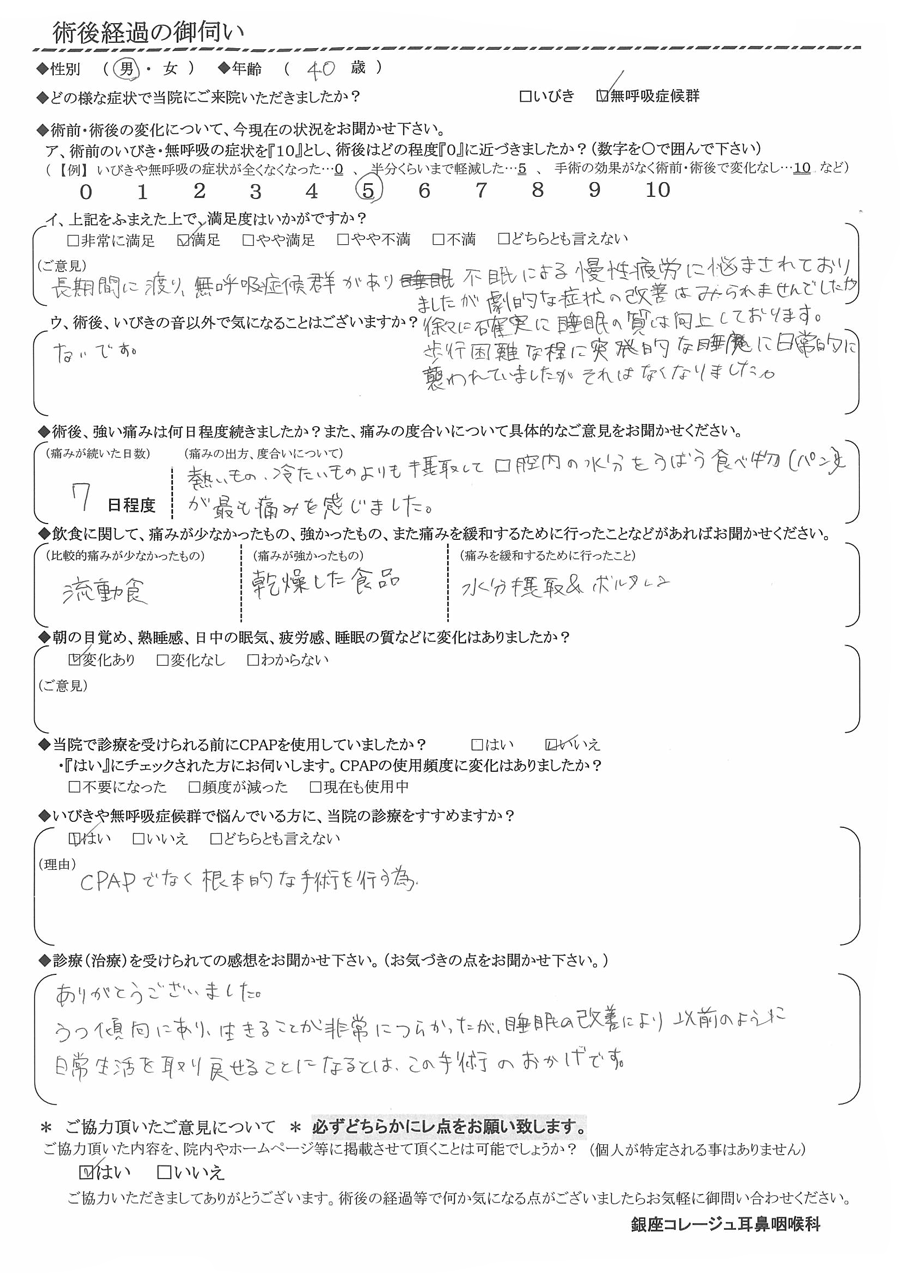 術後経過の御伺い
◆性別 (男・ 女 ) ◆年齢 ( 40 歳 )
◆どの様な症状で当院にご来院いただきましたか? □いびき ☑無呼吸症候群
◆術前・術後の変化について、今現在の状況をお聞かせ下さい。
ア、術前のいびき・無呼吸の症状を『10』とし、術後はどの程度『0』に近づきましたか?(数字を○で囲んで下さい)
(【例】 いびきや無呼吸の症状が全くなくなった…0 、 半分くらいまで軽減した…5 、 手術の効果がなく術前・術後で変化なし…10 など)
0 1 2 3 4 5 6 7 8 9 10
イ、上記をふまえた上で、満足度はいかがですか?
□非常に満足 ☑満足 □やや満足 □やや不満 □不満 □どちらとも言えない
(ご意見)
長期間に渡り、無呼吸症候群があり睡眠 不眠による慢性疲労に悩まされており
ましたが劇的な症状の改善はみられませんでしたが
徐々に確実に睡眠の質は向上しております。
歩行困難な程に突発的な睡魔に日常的に
襲われていましたがそれはなくなりました。
ウ、術後、いびきの音以外で気になることはございますか?
ないです。
◆術後、強い痛みは何日程度続きましたか?また、痛みの度合いについて具体的なご意見をお聞かせください。
(痛みが続いた日数) (痛みの出方、度合いについて)
7 日程度
熱いもの、冷たいものよりも摂取して口腔内の水分をうばう食べ物(パン)
が最も痛みを感じました。
◆飲食に関して、痛みが少なかったもの、強かったもの、また痛みを緩和するために行ったことなどがあればお聞かせください。
(比較的痛みが少なかったもの) (痛みが強かったもの) (痛みを緩和するために行ったこと)
流動食 乾燥した食品 水分摂取&ボルタレン
◆朝の目覚め、熟睡感、日中の眠気、疲労感、睡眠の質などに変化はありましたか?
☑変化あり □変化なし □わからない
(ご意見)
◆当院で診療を受けられる前にCPAPを使用していましたか? □はい ☑いいえ
・『はい』にチェックされた方にお伺いします。CPAPの使用頻度に変化はありましたか?
□不要になった □頻度が減った □現在も使用中
◆いびきや無呼吸症候群で悩んでいる方に、当院の診療をすすめますか?
☑はい □いいえ □どちらとも言えない
(理由)
CPAPでなく根本的な手術を行う為.
◆診療(治療)を受けられての感想をお聞かせ下さい。(お気づきの点をお聞かせ下さい。)
ありがとうございました。
うつ傾向にあり、生きることが非常につらかったが、睡眠の改善により以前のように
日常生活を取り戻せることになるとは、この手術のおかげです。
* ご協力頂いたご意見について * 必ずどちらかにレ点をお願い致します。
ご協力頂いた内容を、院内やホームページ等に掲載させて頂くことは可能でしょうか? (個人が特定される事はありません)
☑はい □いいえ
ご協力いただきましてありがとうございます。術後の経過等で何か気になる点がございましたらお気軽に御問い合わせください。
銀座コレージュ耳鼻咽喉科